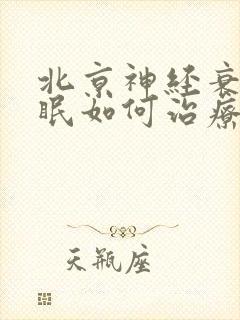 北京神经衰
眠如何治疗
天瓶座